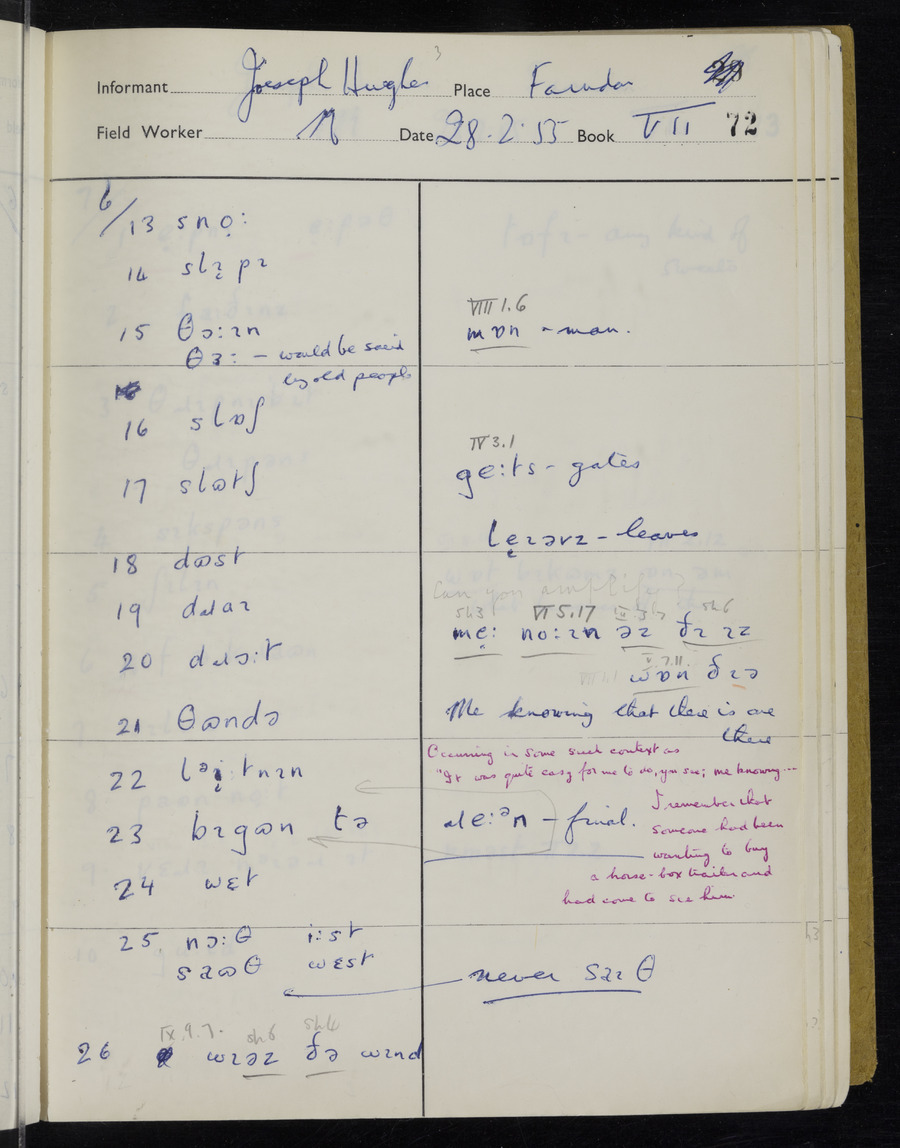 Informant Joseph Hughes 3 Place Farndon
Field Worker N Date 28.2.55 Book VII 72
6/13 snọ:
14 slɪ̣pɪ
15 θɔ:ɪn
θɜ: – would be said
by old people
16 slɒʃ
17 slɷtʃ
18 dɷst
19 dɹaɪ
20 dɹɔ:t
21 θɷndə
22 ləị:tnɪn
23 bɪgɷn tə
24 wɛt
25. nɔ:θ i:st
sɪɷθ wɛst
26 wɪəz ðə wɪnd
IX.9.7. sh6 sh4
VIII 1.6
mɒn - man.
IV 3.1
ge:ts - gates
lẹɪəvz - leaves
can you amplify?
sh3 VI 5.17 sh6
mẹ: no:ɪn əz ðɪ ɪz
V 7.11
wɒn ðɪə
Me knowing that there is one
there
Occurring in some such context as
"It was quite easy for me to do, you see; me knowing...
I remember that
someone had been
wanting to buy
a horse-box trailer and
had come to see him
ɹe:ᵊn – final.
never saɪθ